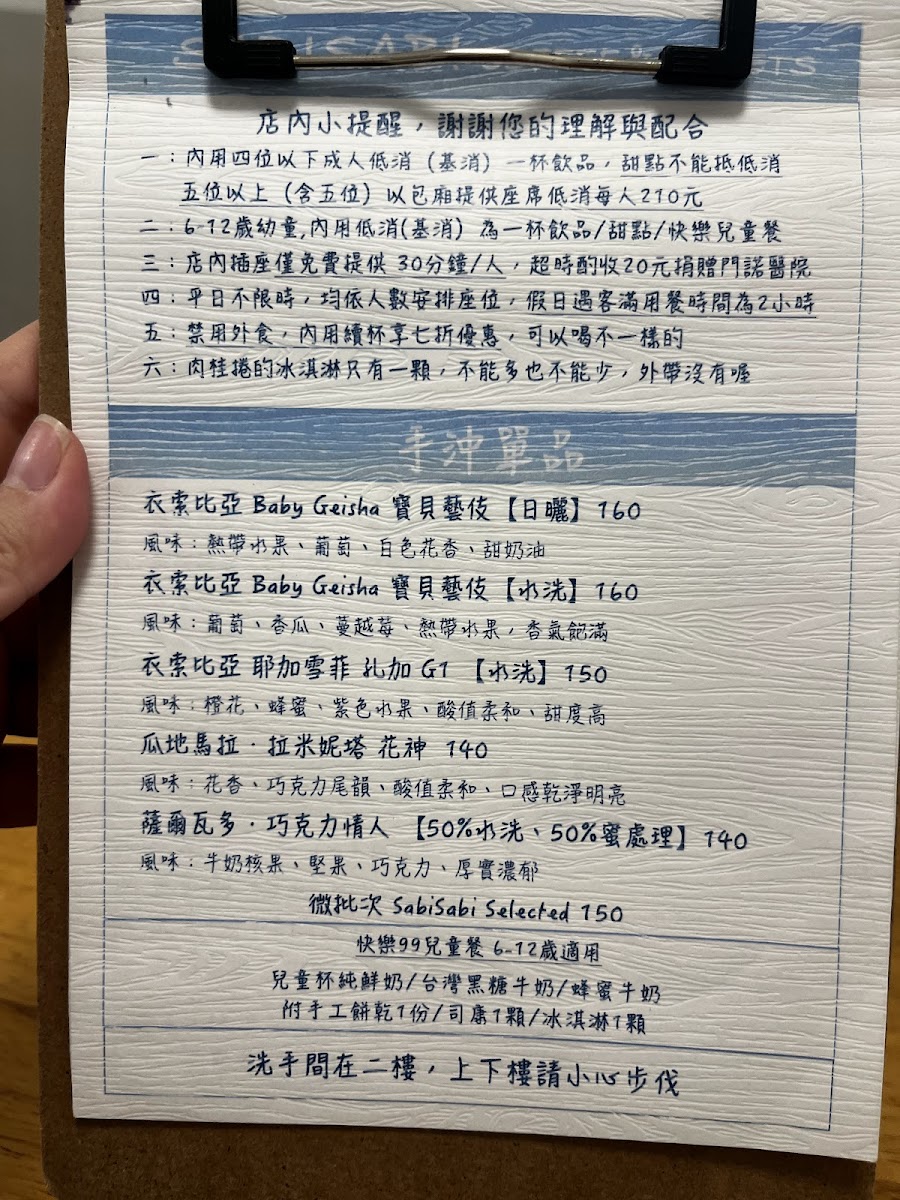 店內小提醒，謝謝您的理解與配合
一：內用四位以下成人低消（基消）一杯飲品，甜點不能抵低消
五位以上（含五位）以包廂提供座席低消每人210元
二：6-12歲幼童,內用低消(基消) 為一杯飲品/甜點/快樂兒童餐
三：店內插座僅免費提供 30分鐘/人，超時酌收20元捐贈門諾醫院
四：平日不限時，均依人數安排座位，假日遇客滿用餐時間為2小時
五：禁用外食，內用續杯享七折優惠，可以喝不一樣的
六：肉桂捲的冰淇淋只有一顆，不能多也不能少，外帶沒有喔
手沖單品
衣索比亞 Baby Geisha 寶貝藝伎【日曬】160
風味：熱帶水果、葡萄、白色花香、甜奶油
衣索比亞 Baby Geisha 寶貝藝伎【水洗】160
風味：葡萄、香瓜、蔓越莓、熱帶水果，香氣飽滿
衣索比亞 耶加雪菲 孔加 G1 【水洗】150
風味：橙花、蜂蜜、紫色水果、酸值柔和、甜度高
瓜地馬拉．拉米妮塔 花神 140
風味：花香、巧克力尾韻、酸值柔和、口感乾淨明亮
薩爾瓦多．巧克力情人 【50%水洗、50%蜜處理】140
風味：牛奶核果、堅果、巧克力、厚實濃郁
微批次 SabiSabi Selected 150
快樂99兒童餐 6-12歲適用
兒童杯純鮮奶/台灣黑糖牛奶/蜂蜜牛奶
附手工餅乾1份/司康1顆/冰淇淋1顆
洗手間在二樓，上下樓請小心步伐